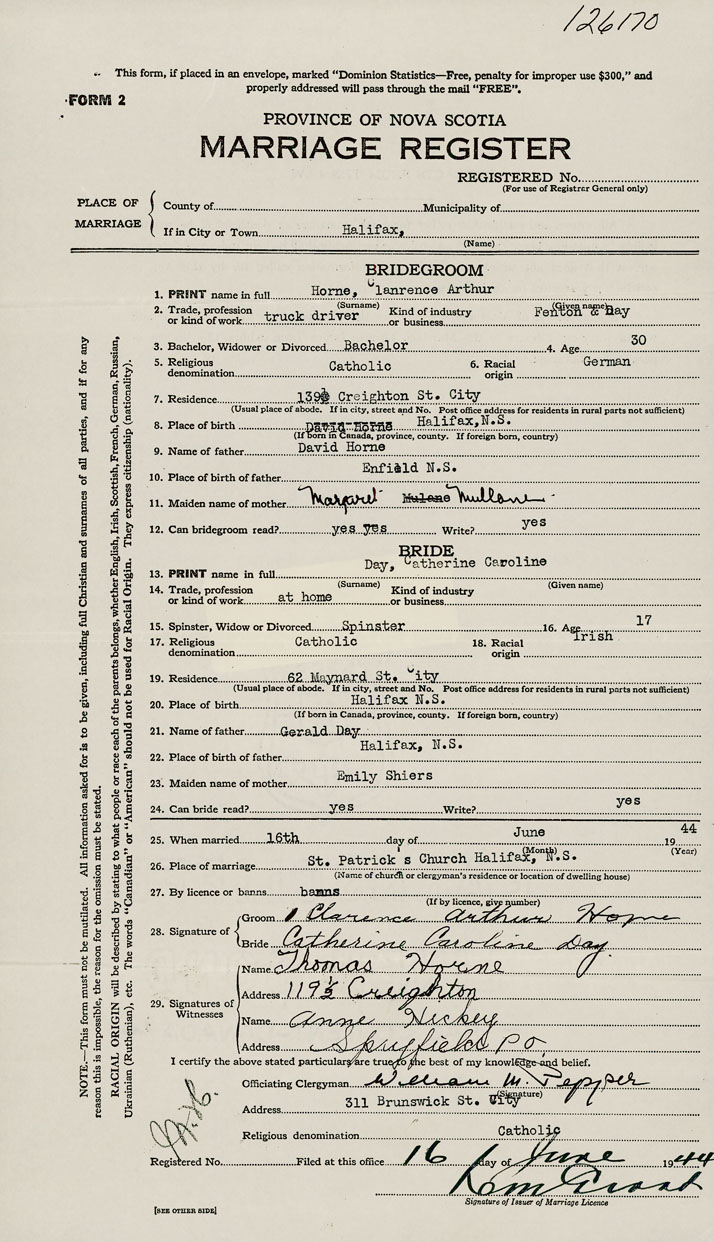 126170
This form, if placed in an envelope, marked "Dominion Statistics—Free, penalty for improper use $300," and
properly addressed will pass through the mail "FREE".
FORM 2
PROVINCE OF NOVA SCOTIA
MARRIAGE REGISTER
REGISTERED No.
(For use of Registrar General only)
PLACE OF MARRIAGE
County of Municipality of
If in City or Town Halifax,
(Name)
BRIDEGROOM
1. PRINT name in full Horne, Clanrence Arthur
(Surname) (Given name)
2. Trade, profession or kind of work truck driver Kind of industry or business Fenton & Day
3. Bachelor, Widower or Divorced Bachelor 4. Age 30
5. Religious denomination Catholic 6. Racial origin German
7. Residence 139½ Creighton St. City
(Usual place of abode. If in city, street and No. Post office address for residents in rural parts not sufficient)
8. Place of birth David Horne Halifax,N.S.
(If born in Canada, province, county. If foreign born, country)
9. Name of father David Horne
10. Place of birth of father Enfield N.S.
11. Maiden name of mother Margaret Mulane Mullane
12. Can bridegroom read? yes yes Write? yes
BRIDE
13. PRINT name in full Day, Catherine Caroline
(Surname) (Given name)
14. Trade, profession or kind of work at home Kind of industry or business
15. Spinster, Widow or Divorced Spinster 16. Age 17
17. Religious denomination Catholic 18. Racial origin Irish
19. Residence 62 Maynard St. City
(Usual place of abode. If in city, street and No. Post office address for residents in rural parts not sufficient)
20. Place of birth Halifax N.S.
(If born in Canada, province, county. If foreign born, country)
21. Name of father Gerald Day
22. Place of birth of father Halifax, N.S.
23. Maiden name of mother Emily Shiers
24. Can bride read? yes Write? yes
25. When married 16th day of June 1944
(Month) (Year)
26. Place of marriage St. Patrick's Church Halifax, N.S.
(Name of church or clergyman's residence or location of dwelling house)
27. By licence or banns banns
(If by licence, give number)
28. Signature of
Groom Clarence Arthur Horne
Bride Catherine Caroline Day.
29. Signatures of Witnesses
Name Thomas Horne
Address 119½ Creighton
Name Anne Hickey
Address Spryfield P.O.
I certify the above stated particulars are true to the best of my knowledge and belief.
Officiating Clergyman William M. Pepper
(Signature)
Address 311 Brunswick St. City
Religious denomination Catholic
Registered No. Filed at this office 16 day of June 1944
Signature of Issuer of Marriage Licence
[SEE OTHER SIDE]
NOTE.—This form must not be mutilated. All information asked for is to be given, including full Christian and surnames of all parties, and if for any
reason this is impossible, the reason for the omission must be stated.
RACIAL ORIGIN will be described by stating to what people or race each of the parents belongs, whether English, Irish, Scottish, French, German, Russian,
Ukrainian (Ruthenian), etc. The words "Canadian" or "American" should not be used for Racial Origin. They express citizenship (nationality).